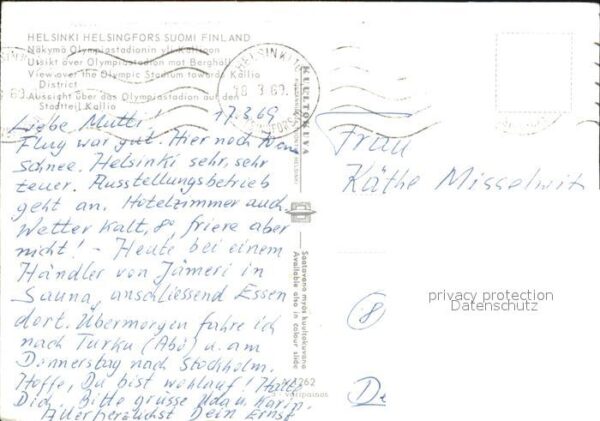 HELSINKI HELSINGFORS SUOMI FINLAND
Näkymä Olympiastadionin yli Kallioon
Utsikt över Olympiastadion mot Berghäll
View over the Olympic Stadium towards Kallio
District
Aussicht über das Olympiastadion auf den
Stadtteil Kallio
HELSINKI
18.3.69
KUULTOKUVA
17.3.69
Liebe Mutti!
Flug war gut. Hier noch
Schnee. Helsinki sehr, sehr
teuer. Ausstellungsbetrieb
geht an. Hotelzimmer auch.
Wetter kalt, 8°, friere aber
nicht! - Heute bei einem
Händler von Jämeri in
Sauna, anschliessend Essen
dort. Übermorgen fahre ich
nach Turku (Åbo) u. am
Donnerstag nach Stockholm.
Hoffe, Du bist wohlauf! Halte
Dich. Bitte grüsse Ilda u. Karin.
Allerherzlichst Dein Ernst
Saatavana myös kuultokuvana
Available also in colour slide
3262
Väripainos
Frau
Käthe Misselwit
8
De
privacy protection
Datenschutz